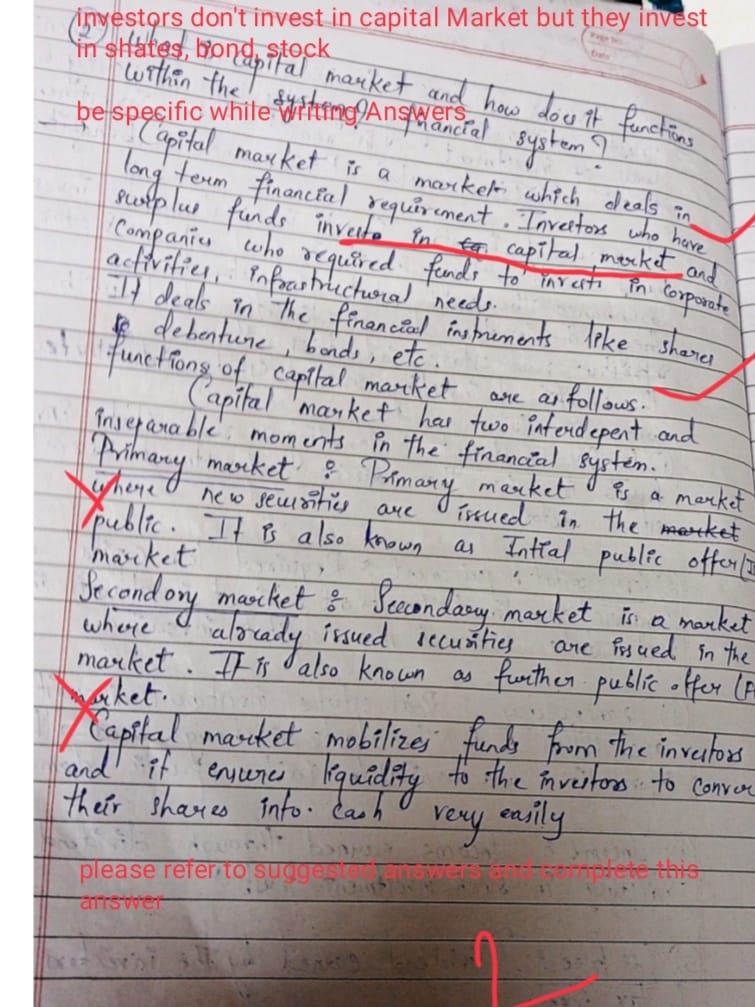 investors don't invest in capital Market but they invest
in shates, bond, stock
be specific while writing Answers
(2) What is capital market and how does it functions
within the system? financial system?
→ Capital market is a market which deals in
long term financial requirement. Investors who have
surplus funds invests in capital market and
Companies who required funds to invests in corporate
activities, infrastructural needs.
It deals in the financial instruments like shares
debenture, bonds, etc.
functions of capital market are as follows.
Capital market has two interdepent and
inseparable moments in the financial system.
Primary market : Primary market is a market
where new securities are issued in the market
public. It is also known as Intial public offer (I
market
Secondory market : Seecondary market is a market
where already issued securities are issued in the
market. It is also known as further public offer (F
market.
Capital market mobilizes funds from the investors
and it ensures liquidity to the investors to conver
their shares into cash very easily
please refer to suggested answers and complete this
answer
2